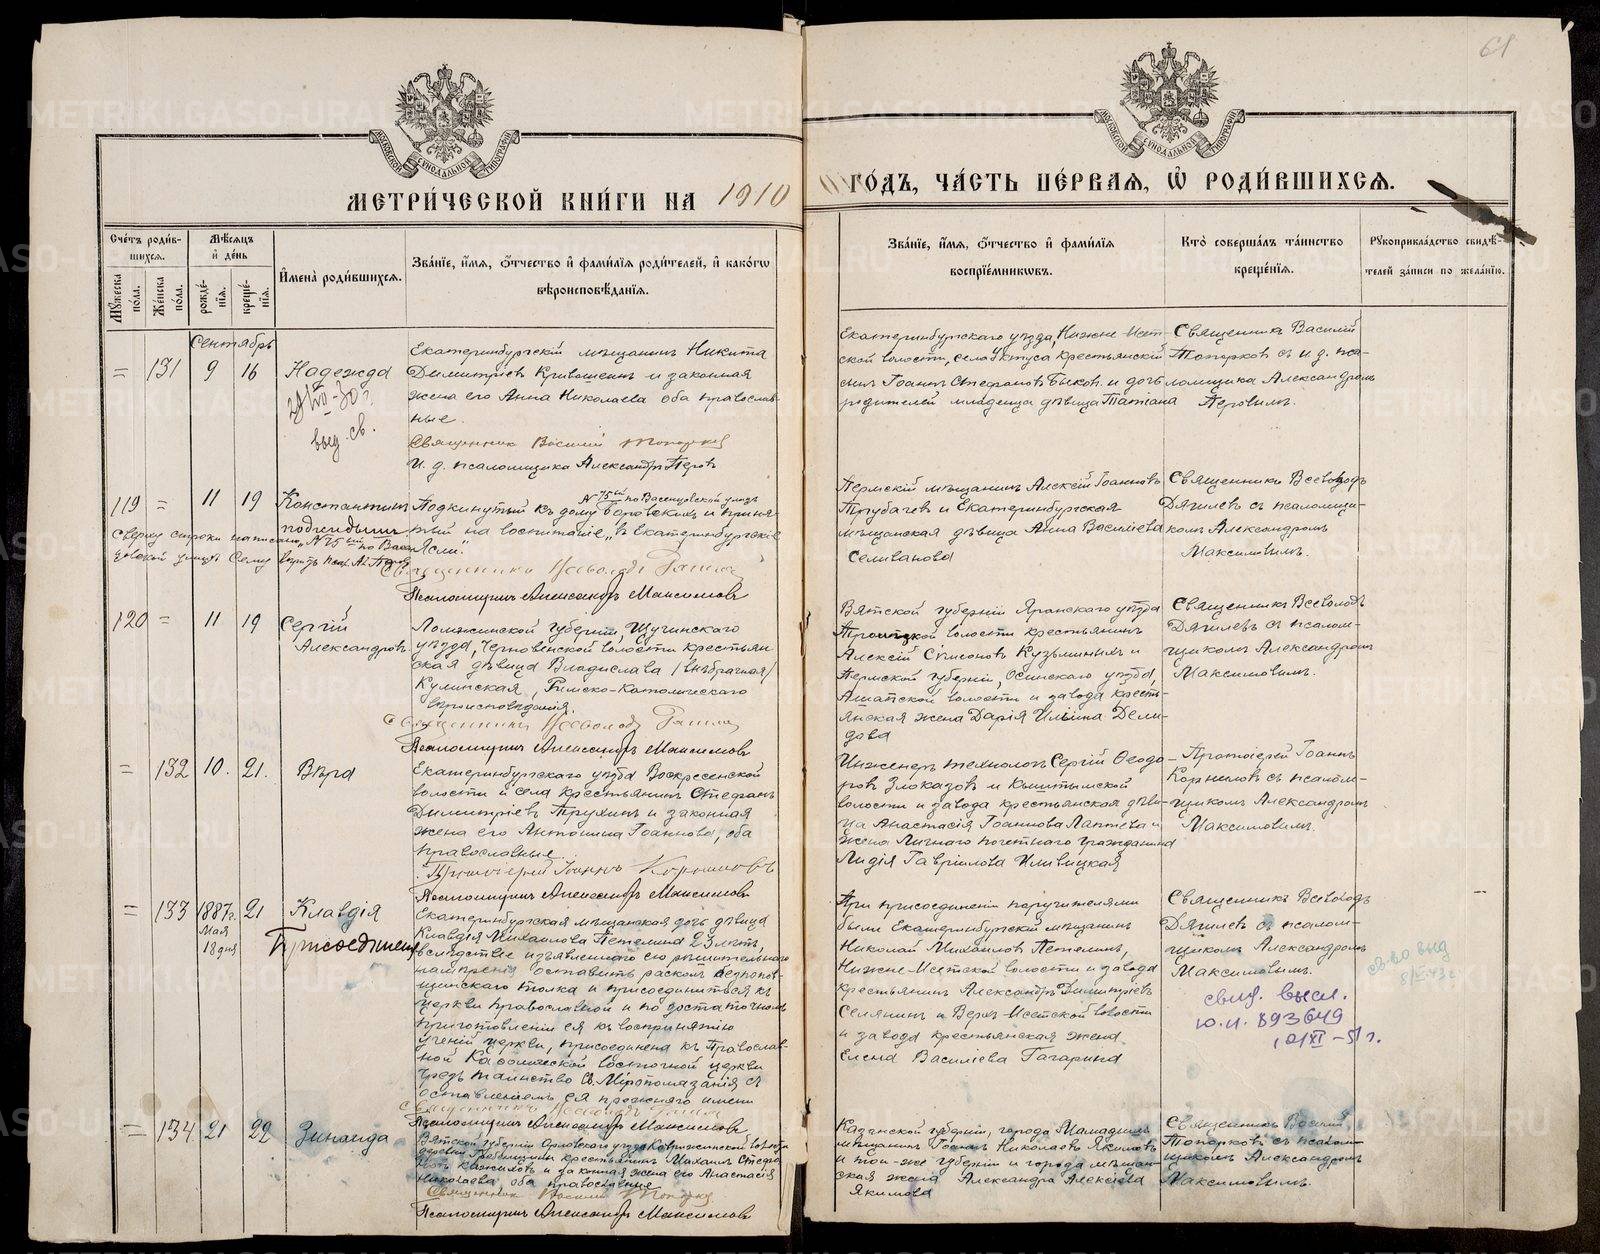 61
МЕТРИЧЕСКОЙ КНИГИ НА 1910
ГОДЪ, ЧАСТЬ ПЕРВАЯ, Ѡ РОДИВШИХСЯ.
Счетъ родив-
шихся.
Мѣсяцъ
и день
Имена родившихся.
Званіе, имя, отчество и фамилія родителей, и какого
вѣроисповѣданія.
Мужеска
пола.
Женска
пола.
рожде-
нія.
креще-
нія.
Званіе, имя, отчество и фамилія
воспріемниковъ.
Кто совершалъ таинство
крещенія.
Рукоприкладство свидѣ-
телей записи по желанію.
Сентябрь
= 131 9 16 Надежда
выд. св.
Екатеринбургскій мѣщанинъ Никита
Димитріевъ Кривошеинъ и законная
жена его Анна Николаева оба православ-
ные.
Священникъ Василій Топорковъ
И. д. псаломщика Александръ Перовъ
Екатеринбургскаго уѣзда, Нижне-Исет-
ской волости, села Уктуса крестьянскій
сынъ Іоаннъ Стефановъ Быков. и дочь
родителей младенца дѣвица Татіана
Священникъ Василій
Топорковъ съ и. д. пса-
ломщика Александромъ
Перовымъ.
119 = 11 19 Константинъ
подкидышъ
№ 75ый по Васенцовской улицѣ
Подкинутый къ дому Боровскихъ и приня-
тый на воспитаніе „въ Екатеринбургскіе
Ясли".
Сверху строки написано „№ 75ый по Васен-
цовской улицѣ"
Псаломщикъ Александръ Максимовъ
Пермскій мѣщанинъ Алексій Іоанновъ
Трубачевъ и Екатеринбургская
мѣщанская дѣвица Анна Василіева
Селиванова
Священникъ Всеволодъ
Дягилевъ съ псаломщи-
комъ Александромъ
Максимовымъ.
120 = 11 19 Сергій
Александровъ.
Ломжинской губерніи, Щучинскаго
уѣзда, Черновенской волости крестьян-
ская дѣвица Владислава /внѣбрачная/
Кулинская, Римско-Католическаго
вѣроисповѣданія.
Псаломщикъ Александръ Максимовъ
Вятской губерніи Яранскаго уѣзда
Троицкой волости крестьянинъ
Алексій Симоновъ Кузьминыхъ и
Пермской губерніи, Осинскаго уѣзда,
Ашапской волости и завода кресть-
янская жена Дарія Ильина Деми-
дова
Священникъ Всеволодъ
Дягилевъ съ псалом-
щикомъ Александромъ
Максимовымъ.
= 132 10. 21. Вѣра
Екатеринбургскаго уѣзда Воскресенской
волости и села крестьянинъ Стефанъ
Димитріевъ Трухинъ и законная
жена его Антонина Іоаннова, оба
православные.
Протоіерей Іоаннъ Корниловъ
Псаломщикъ Александръ Максимовъ
Инженеръ технологъ Сергій Ѳеодо-
ровъ Злоказовъ и Кыштымской
волости и завода крестьянская дѣви-
ца Анастасія Іоаннова Лаптева и
жена Личнаго почетнаго гражданина
Лидія Гавріилова
Протоіерей Іоаннъ
Корниловъ съ псалом-
щикомъ Александромъ
Максимовымъ.
= 133 1887г. 21 Клавдія
Мая
18 дня
Присоединена
Екатеринбургская мѣщанская дочь дѣвица
Клавдія Михаилова Петелина 23 лѣтъ,
вслѣдствіе изъявленнаго ею рѣшительнаго
намѣренія оставить расколъ безпопов-
щинскаго толка и присоединиться къ
церкви православной и по достаточномъ
приготовленіи ея къ воспринятію
ученій церкви, присоединена къ Православ-
ной Каѳолической восточной церкви
чрезъ таинство Св. Мѵропомазанія съ
оставленіемъ ея прежняго имени
Псаломщикъ Александръ Максимовъ
При присоединеніи поручителями
были Екатеринбургскій мѣщанинъ
Николай Михаиловъ Петелинъ,
Нижне-Исетской волости и завода
крестьянинъ Александръ Димитріевъ
Селянинъ и Верх-Исетской волости
и завода крестьянская жена
Елена Василіева Гагарина
Священникъ Всеволодъ
Дягилевъ съ псалом-
щикомъ Александромъ
Максимовымъ.
свид. высл.
Ю.И. 893649
св-во выд
= 134 21 22 Зинаида
Николаева, оба православные
Священникъ Василій Топорковъ
Псаломщикъ Александръ Максимовъ
Казанской губерніи, города Мамадышъ
мѣщанинъ Іоаннъ Николаевъ Якимовъ
и той-же губерніи и города мѣщан-
ская жена Александра Алексіева
Якимова
Священникъ Василій
Топорковъ съ псалом-
щикомъ Александромъ
Максимовымъ.
METRIKI.GASO-URAL.RU